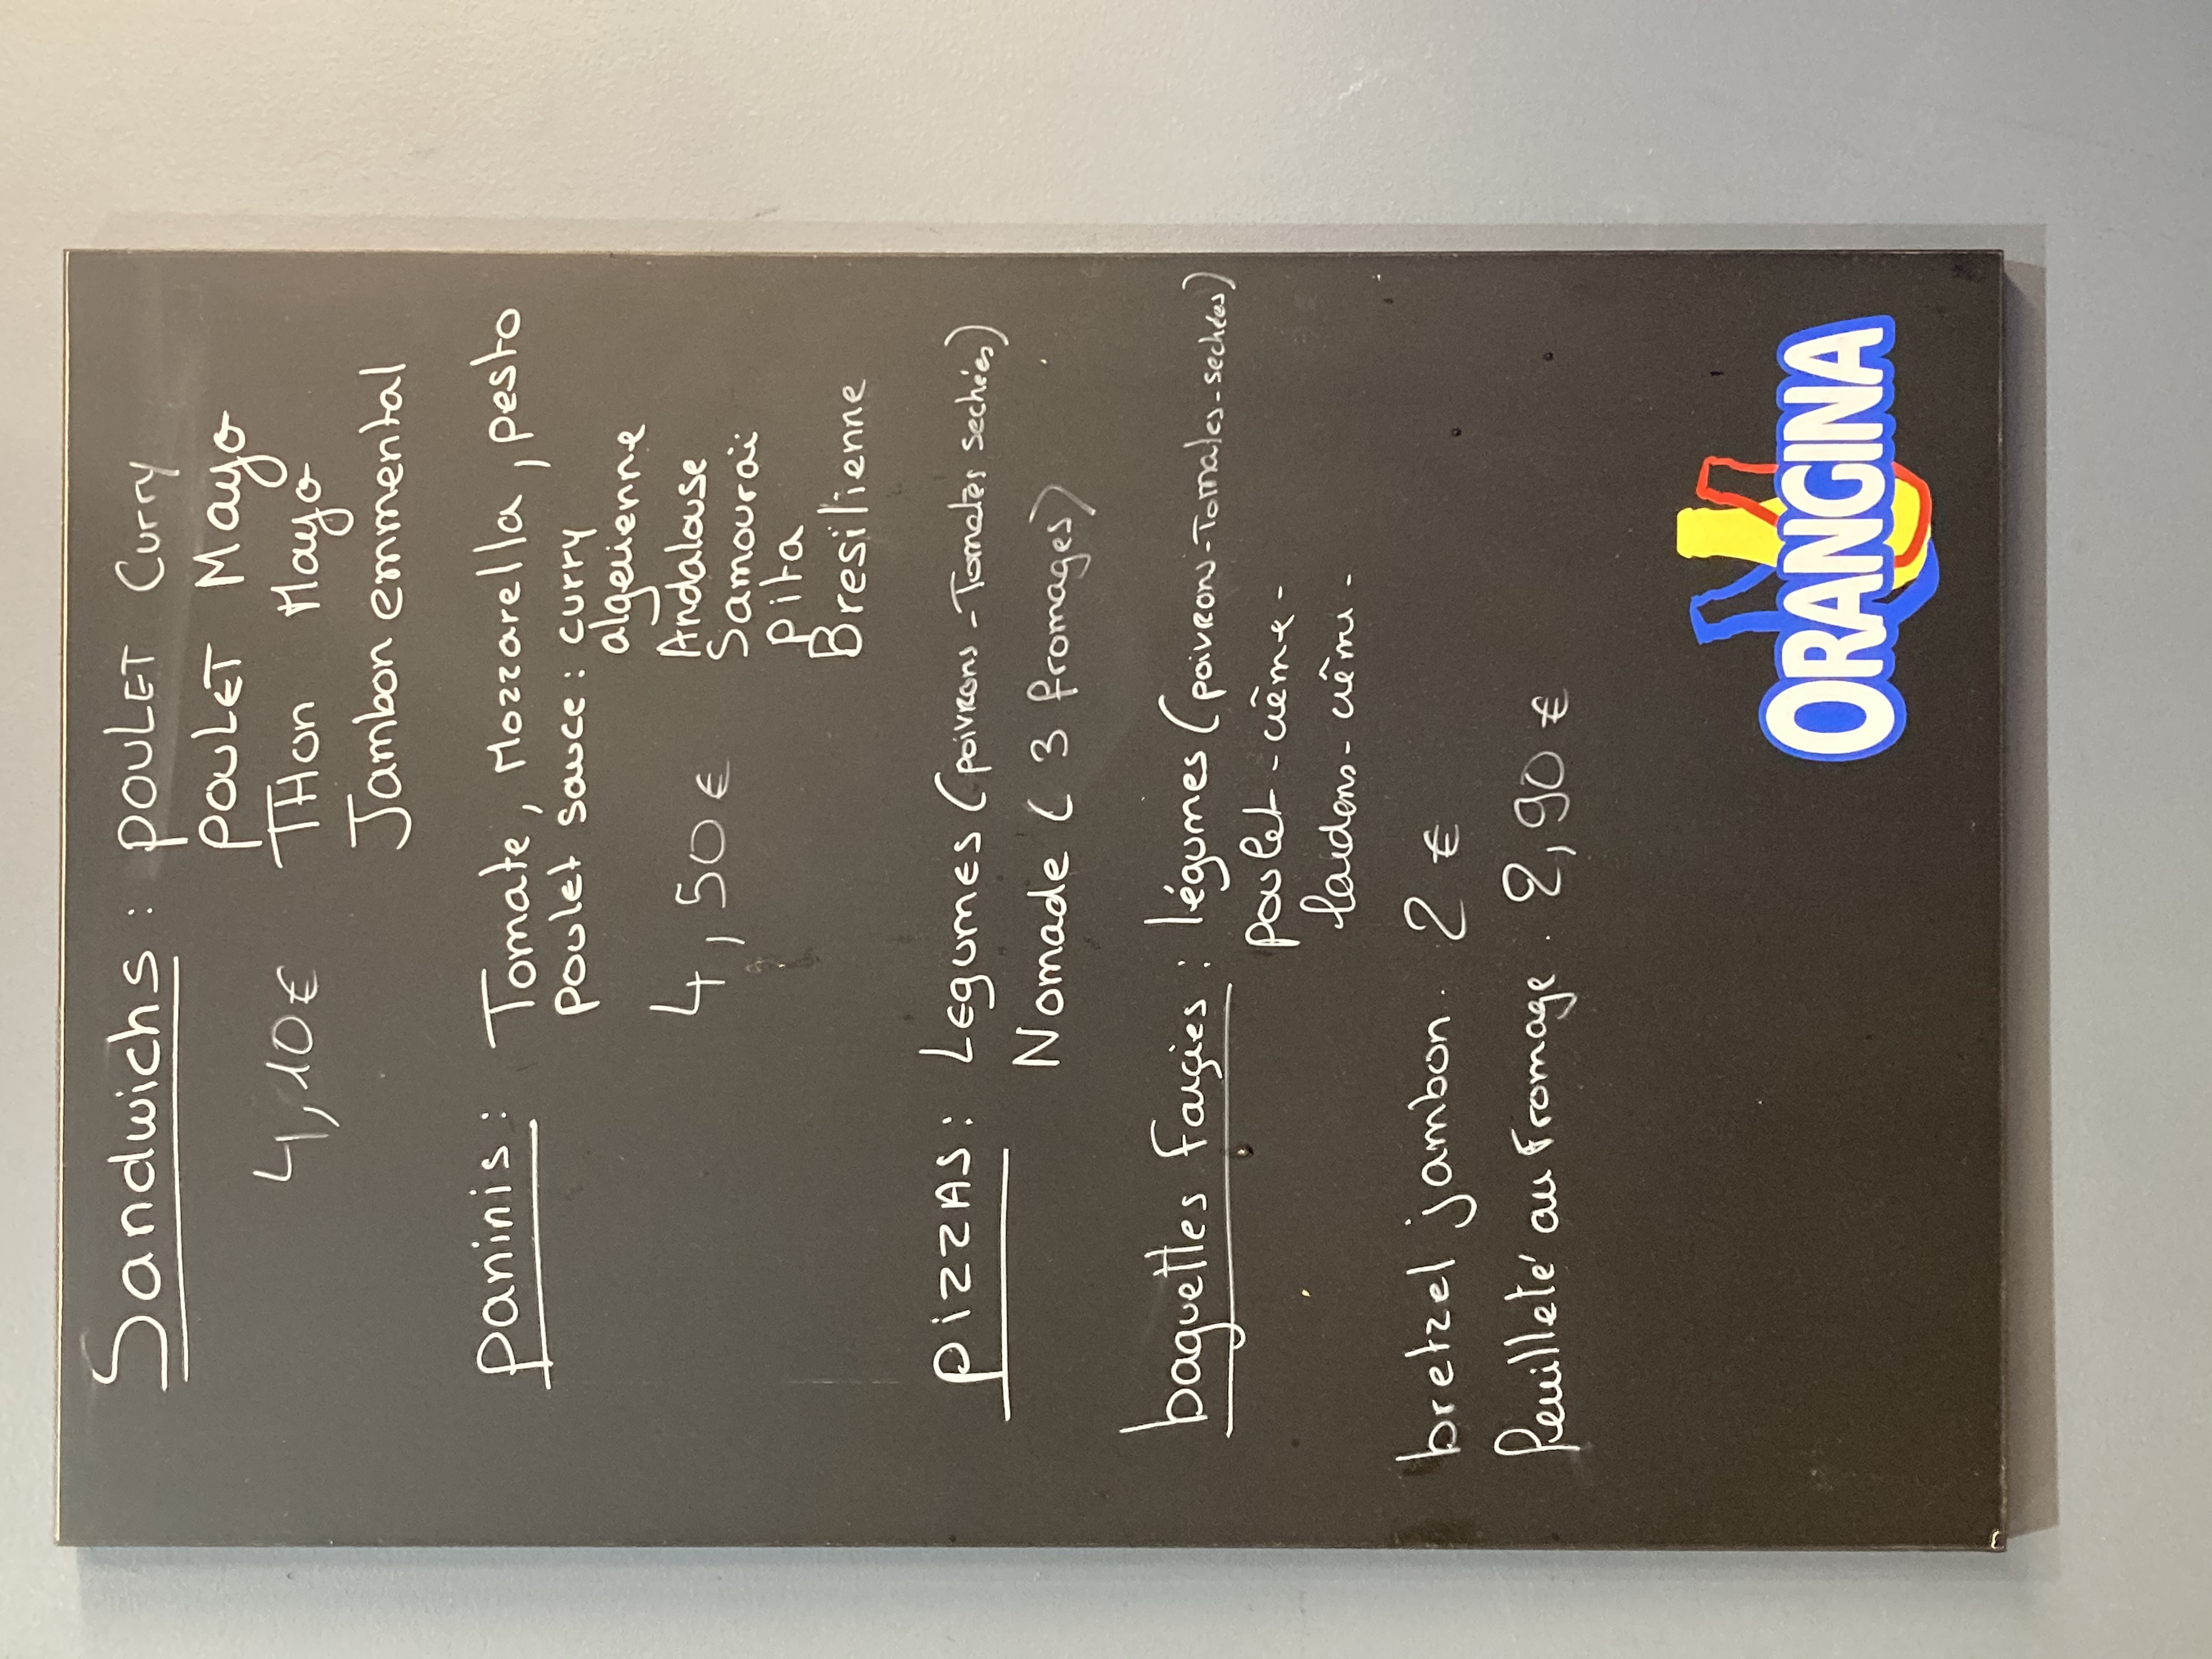 Sandwichs : POULET Curry
POULET Mayo
4,10€ THon Mayo
Jambon emmental
paninis : Tomate, Mozzarella, pesto
poulet sauce : curry
algerienne
4,50€ Andalouse
Samourai
Pita
Bresilienne
PIZZAS : LEGUMES (poivrons - Tomates sechées)
Nomade ( 3 fromages)
baguettes farçies : légumes (poivrons-Tomates-sechées)
poulet - crème -
lardons - crème -
bretzel jambon . 2 €
feuilleté au Fromage . 2,90 €
ORANGINA